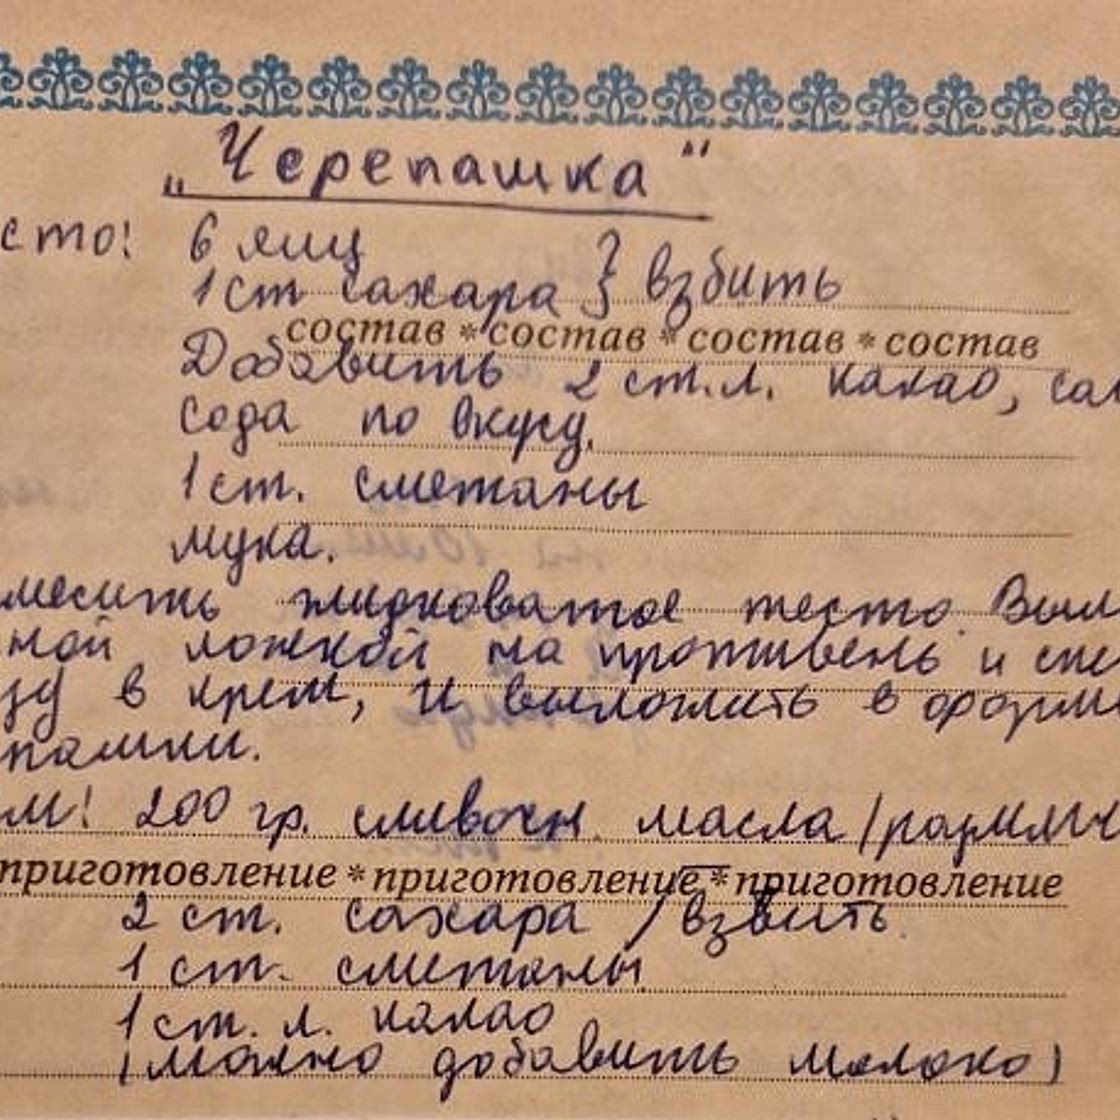 „Черепашка“
сто! 6 яиц
1 ст сахара } взбить
состав * состав * состав * состав
Добавить 2 ст.л. какао,
сода по вкусу.
1 ст. сметаны
мука.
месить жидковатое тесто. Выл
ной ложкой на противень и спе
зу в крем, и выложить в форм
пашки.
м! 200 гр. сливочн. масла /размягч
приготовление * приготовление * приготовление
2 ст. сахара / взбить
1 ст. сметаны
1 ст. л. какао
(можно добавить молоко)